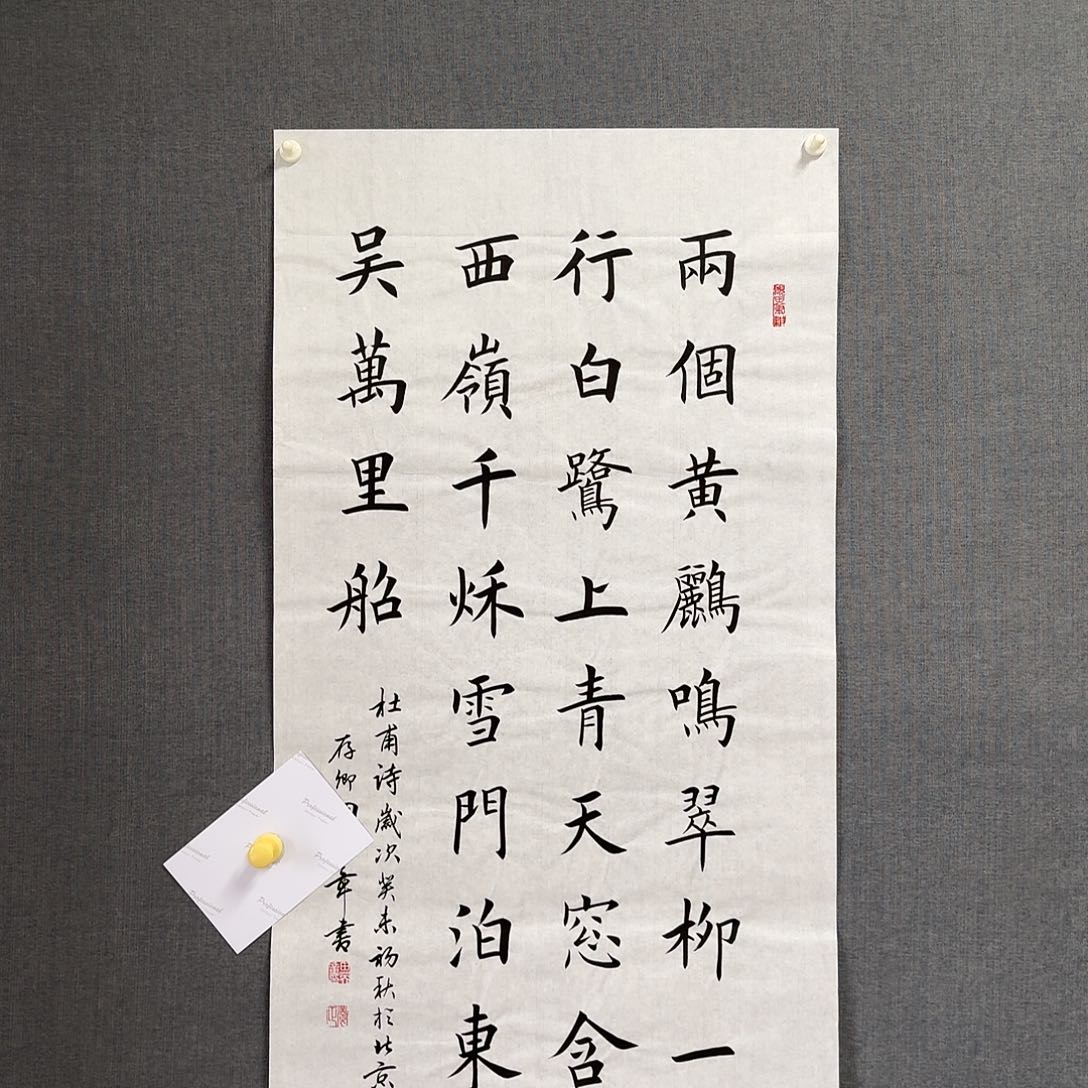 兩個黄鸝鳴翠柳一
行白鷺上青天窓含
西嶺千秌雪門泊東
吴萬里船
杜甫诗歲次癸未初秋於北京
存卿
章書
Professional
Professional
Professional
Professional
Professional